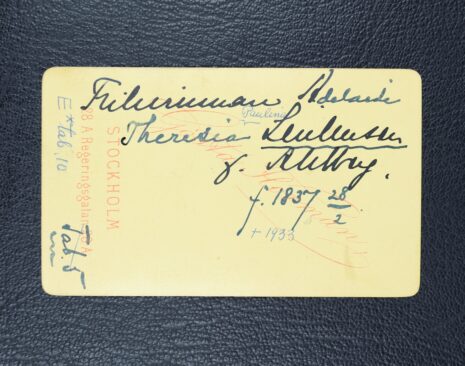 Friherrinnan Adelaide
Pauline
Theresia Leuhusen
f. Ahlberg.
f. 1837 28/2
+ 1933
STOCKHOLM
28 A Regeringsgatan 28 A
E* tab. 10
Tab. 5